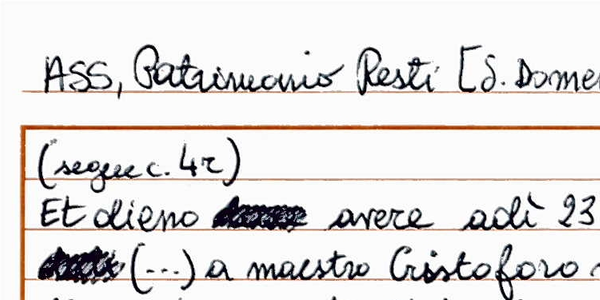 ASS, Patrimonio Resti [S. Dome
(segue c. 4r)
Et dieno avere adì 23
(...) a maestro Cristoforo